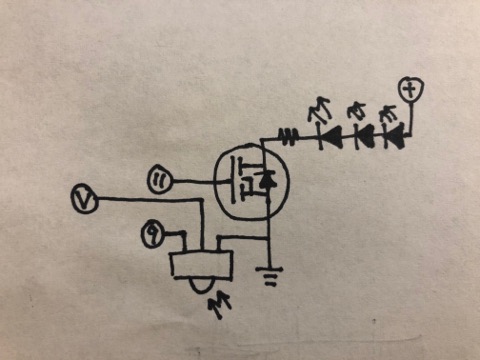 +
11
V
9